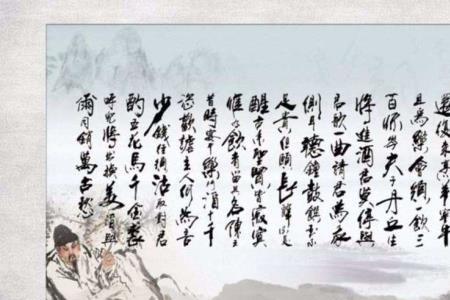 還復來烹羊宰牛
且為樂會須一飲三
百杯岑夫子丹丘生
將進酒君莫停與
君歌一曲請君為我
側耳聽鐘鼓饌玉不
足貴但願長醉不
醒古來聖賢皆寂寞
惟有飲者留其名陳王
昔時宴平樂酒十千
恣歡謔主人何為言
少錢徑須沽取對君
酌五花馬千金裘
呼兒將出換美酒與
爾同銷萬古愁